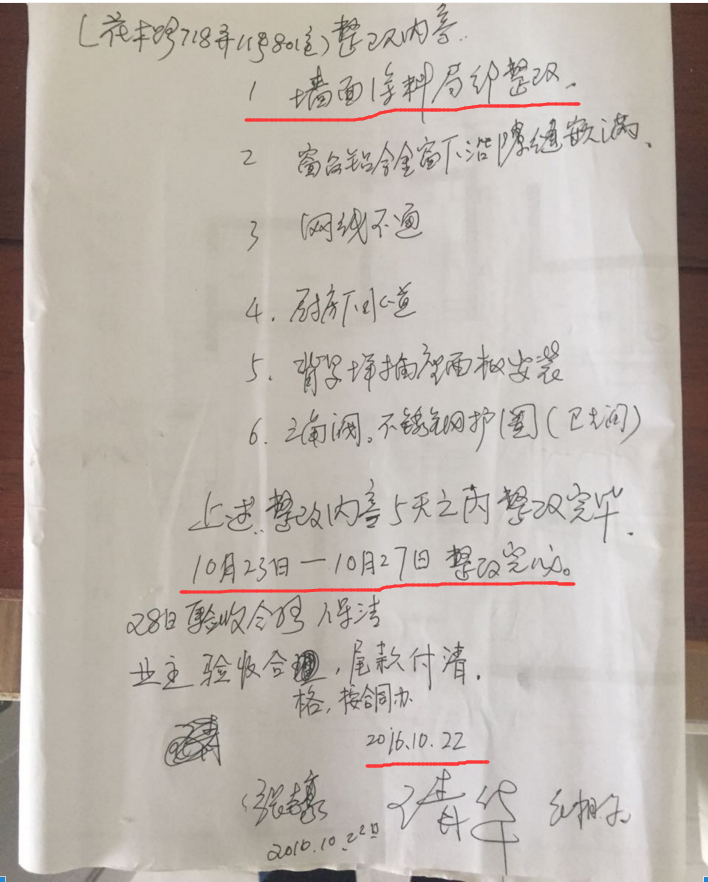 (花木路718弄11号801室)整改内容
1 墙面涂料局部整改.
2 窗台铝合金窗下沿隙缝填满、
3 网线不通
4. 厨房下水道
5. 背景墙插座面板安装
6. 三角阀。不锈钢护圈(卫生间)
上述整改内容5天之内整改完毕.
10月23日—10月27日 整改完毕。
28日验收合格 保洁
业主验收合,尾款付清.
格,按合同办
2016.10.22
2016.10.22日